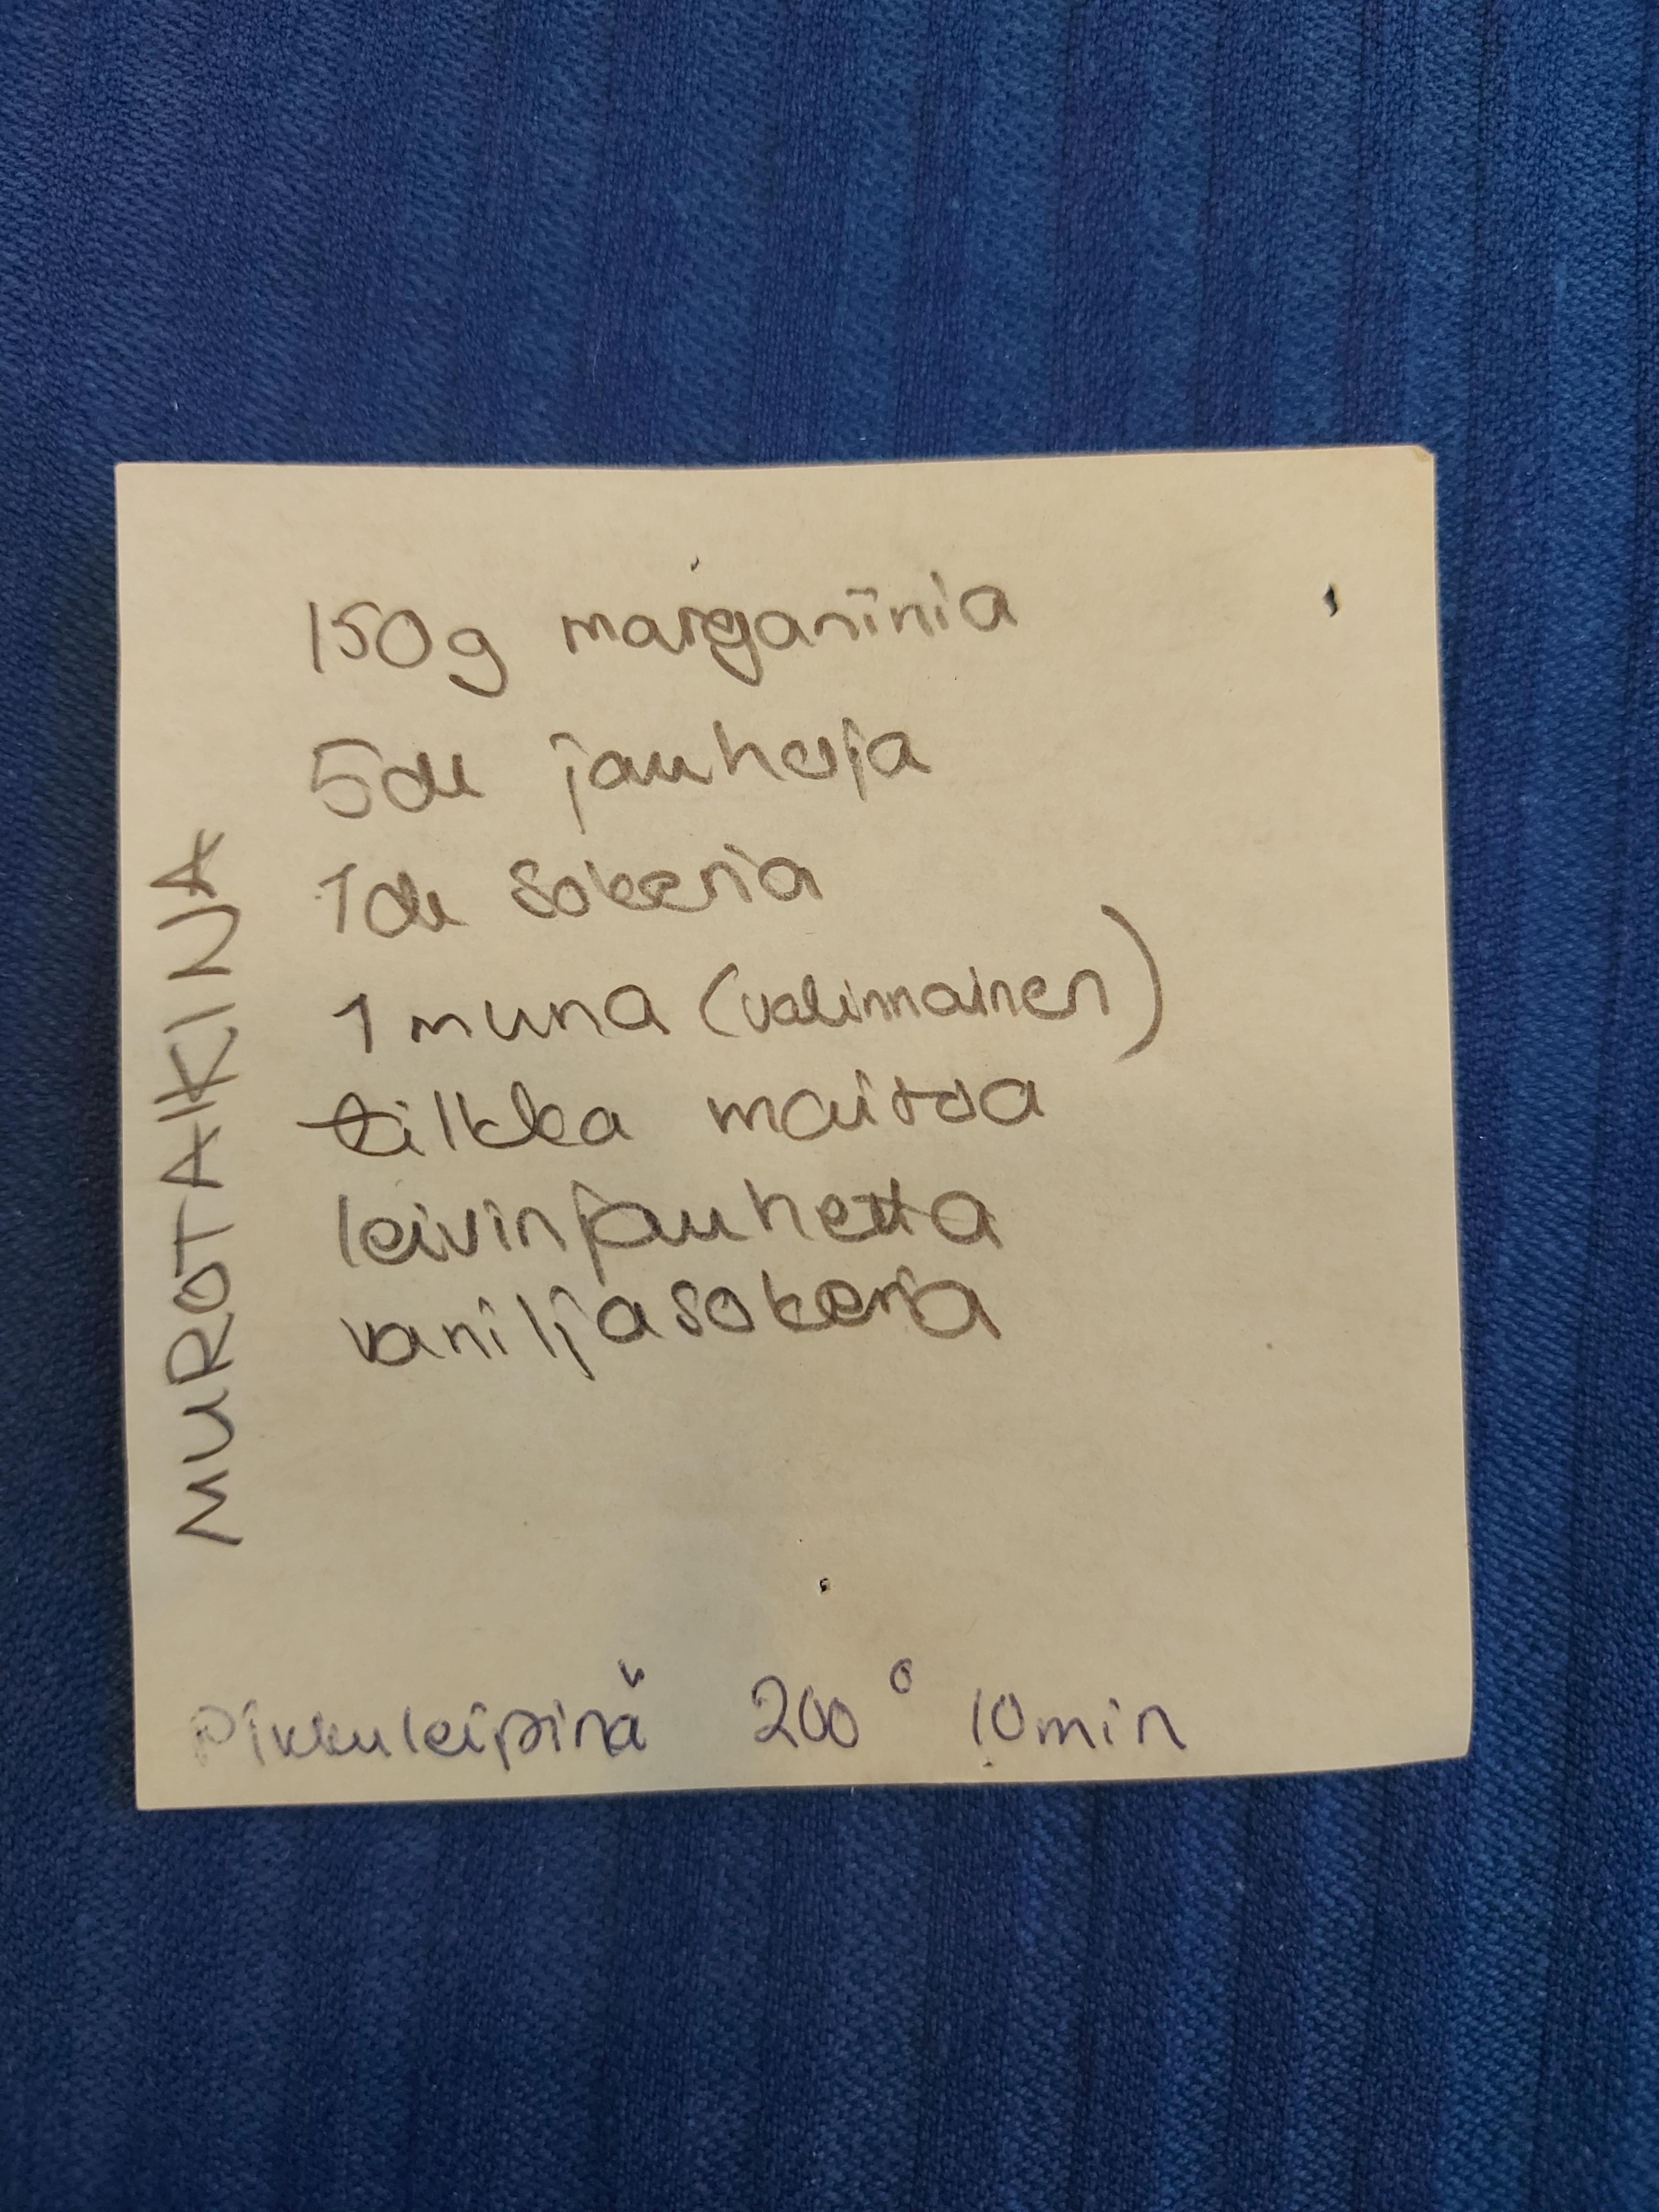 MUROTAIKINA
150g margariinia
5dl jauhoja
1dl sokeria
1 muna (valinnainen)
tilkka maitoa
leivinjauhetta
vaniljasokeria
Pikkuleipinä 200° 10min